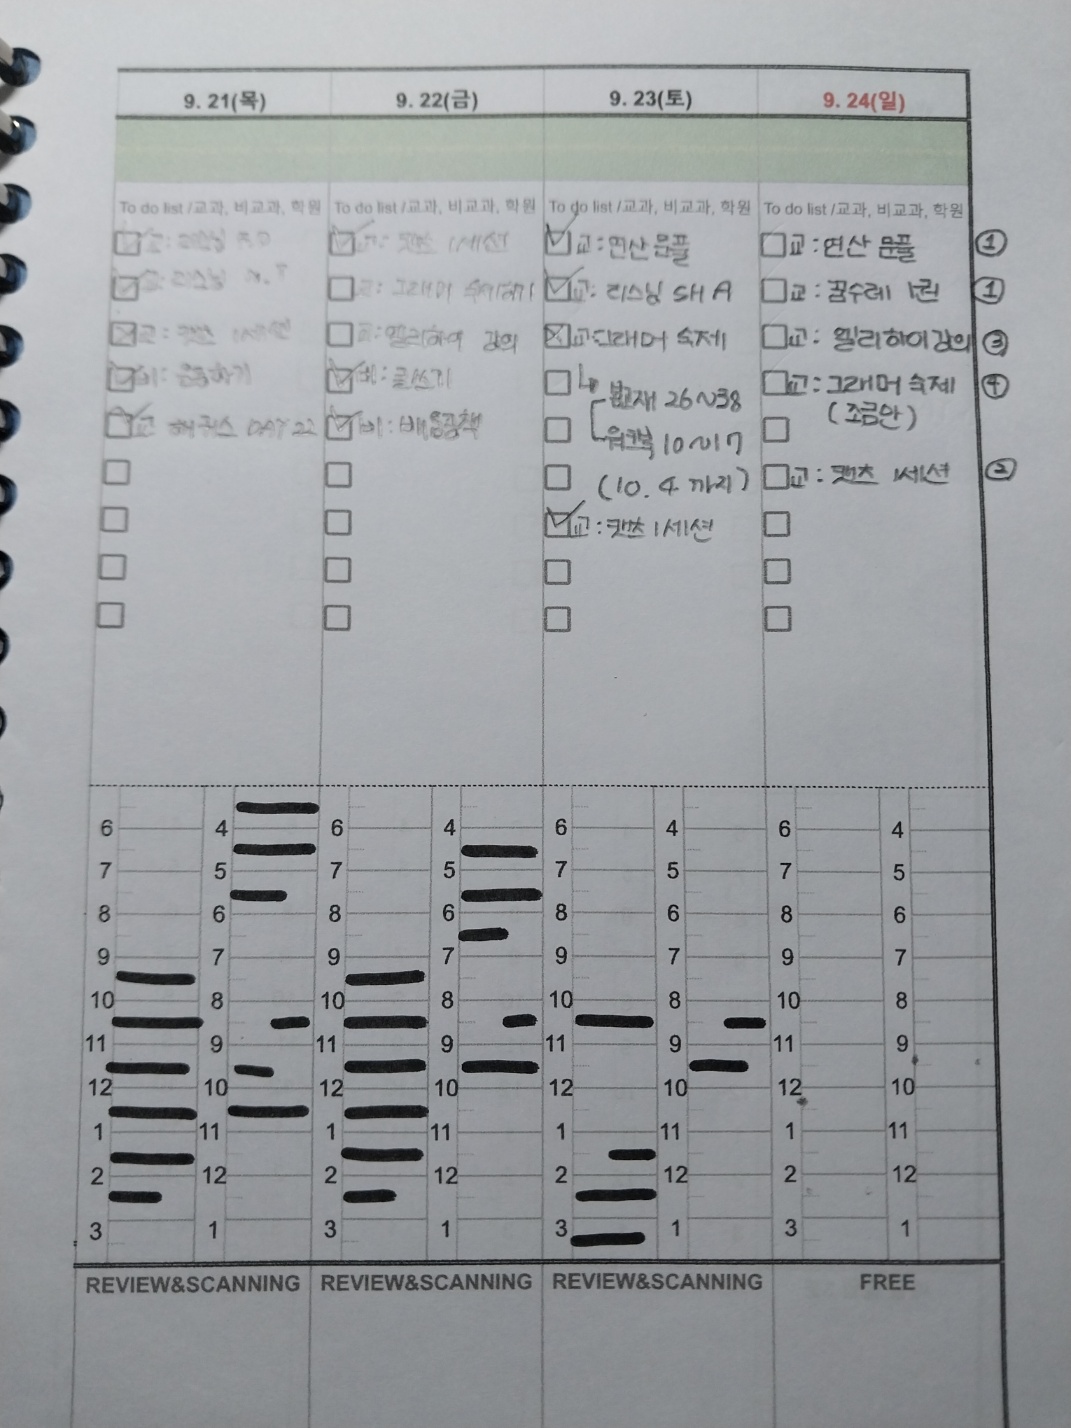 9. 21(목)
9. 22(금)
9. 23(토)
9. 24(일)
To do list /교과, 비교과, 학원
교: 리스닝
교: 리스닝
교: 캣츠 1세션
비: 운동하기
교 해커스 DAY 22
To do list /교과, 비교과, 학원
교: 캣츠 1세션
교: 그래머
교: 밀리하이 강의
비: 글쓰기
비:
To do list /교과, 비교과, 학원
교: 연산 문풀
교: 리스닝 SH A
교: 그래머 숙제
본교재 26~38
워크북 10~17
(10. 4 까지)
교: 캣츠 1세션
To do list /교과, 비교과, 학원
교: 연산 문풀 ①
교: 꿈수레 1권 ①
교: 밀리하이 강의 ③
교: 그래머 숙제 ④
(조금만)
교: 캣츠 1세션 ②
6 4 6 4 6 4 6 4
7 5 7 5 7 5 7 5
8 6 8 6 8 6 8 6
9 7 9 7 9 7 9 7
10 8 10 8 10 8 10 8
11 9 11 9 11 9 11 9
12 10 12 10 12 10 12 10
1 11 1 11 1 11 1 11
2 12 2 12 2 12 2 12
3 1 3 1 3 1 3 1
REVIEW&SCANNING
REVIEW&SCANNING
REVIEW&SCANNING
FREE